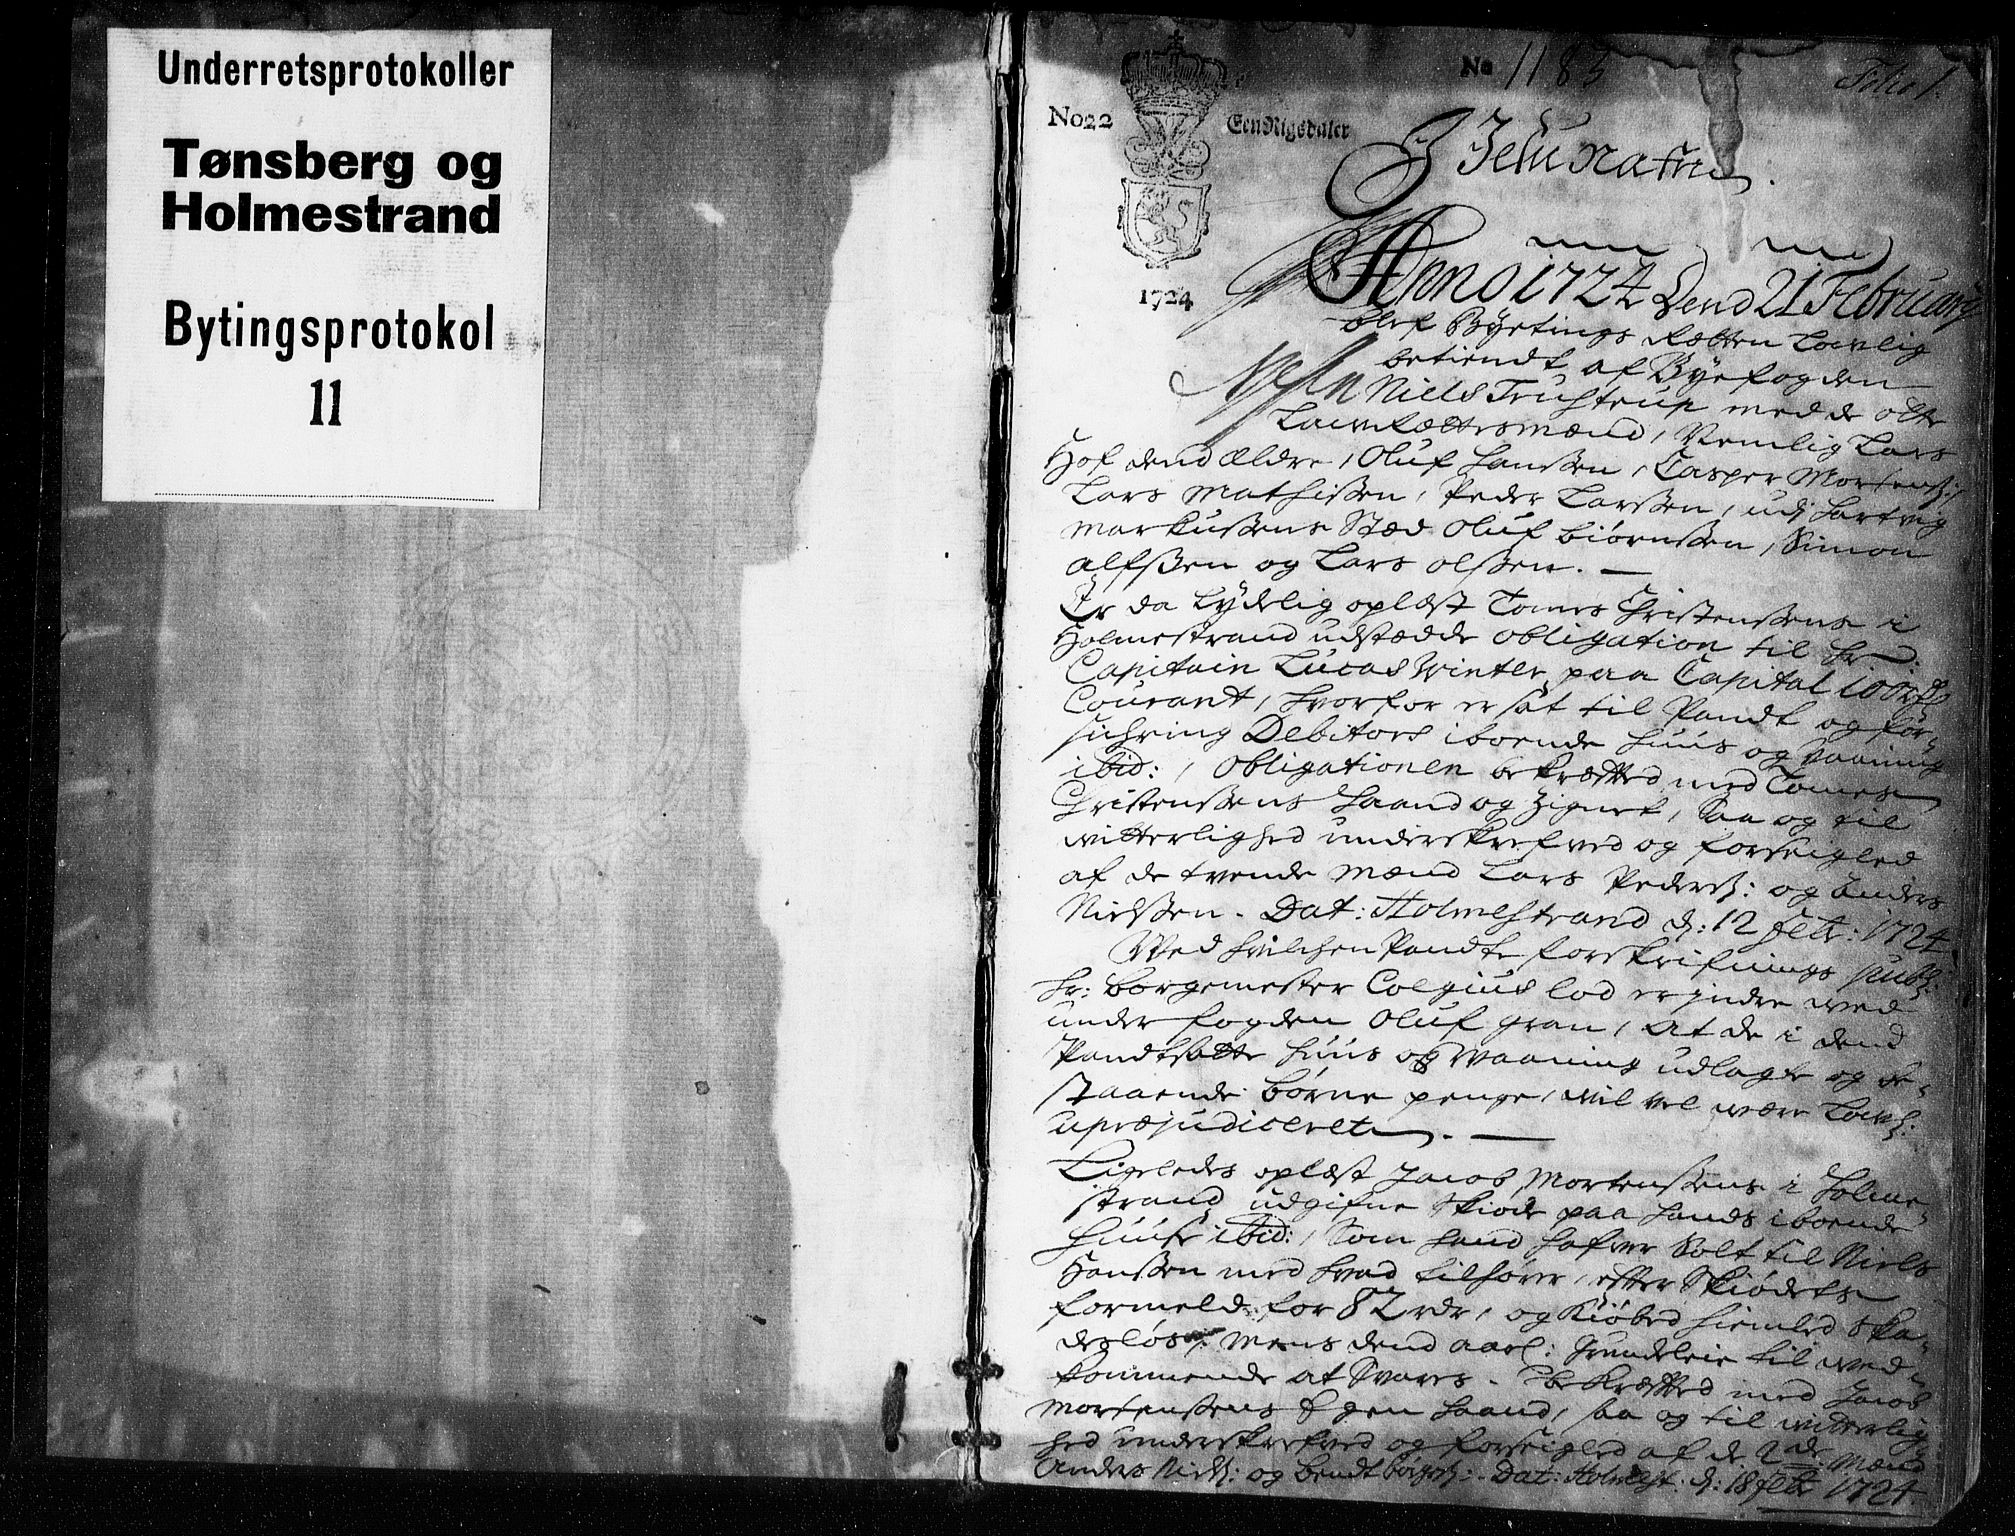 Underretsprotokoller
Tønsberg og
Holmestrand
Bytingsprotokol
11
No 1183
Folio 1.
No 22
Een Rigsdaler
1724
I Jesu Nafn.
Anno 1724 Dend 21 Februarij
blef Byetings Retten Lovlig
betiendt af Byefogden
Niels Trustrup med de otte
LaugRettesmænd, Nemlig Lars
Hof dend ældre, Oluf Hanssen, Casper Mortens:
Lars Mathissen, Peder Larssen, udj Hartvig
Markussens Stæd Oluf biørnssen, Simon
alfssen og Lars olssen.
Er da Lydelig oplæst Tomes Christenssens i
Holmestrand udstædde obligation til Hr:
Capitain Lucas Winter paa Capital 100 rdr
Courant, hvorfor er sat til Pandt og for-
sichring Debitors iboende huus og Vaaning
ibid:, obligationen bekræftted med Tomes
Christenssens haand og Zignet, Saa og til
witterlighed underskrefved og forseigled
af de tvende Mænd Lars Peders: og Anders
Nielssen. Dat: Holmestrand d: 12 febr: 1724
Wed hvilchen Pandte forskrifnings publ:
Hr: borgemester Colgius lod erindre wed
underfogden Oluf gran, at de i dend
Pandtsatte huus og Waaning udlagte og be-
staaende børne penge, wil vel være
upræjudiceret.
Ligeledes oplæst Jacob Mortenssens i Holme-
strand udgifne Skiøde paa hands iboende
huus ibid:, Som hand hafver Solt til Niels
Hanssen med hvad tilhører, efter Skiødets
formeld. for 82 rdr, og Kiøbed hiemled ska-
desløs, mens dend aarl: Grundeleie til wed-
kommende at Svares. Bekræftted med Jacob
Mortenssens Egen haand, saa og til witterlig-
hed underskrefved og forseigled af de 2de Mænd
Anders Niels: og bendt Dat: Holmest: d: 18 febr 1724.